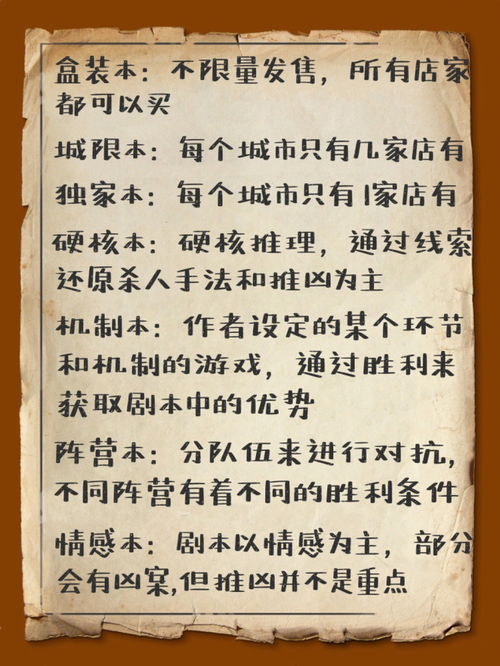 盒装本：不限量发售，所有店家
都可以买
城限本：每个城市只有几家店有
独家本：每个城市只有1家店有
硬核本：硬核推理，通过线索
还原杀人手法和推凶为主
机制本：作者设定的某个环节
和机制的游戏，通过胜利来
获取剧本中的优势
阵营本：分队伍来进行对抗，
不同阵营有着不同的胜利条件
情感本：剧本以情感为主，部分
会有凶案,但推凶并不是重点